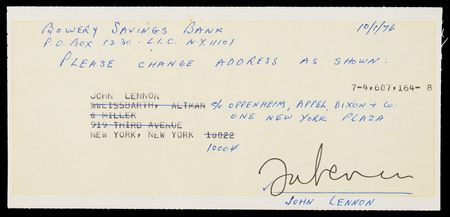 BOWERY SAVINGS BANK 10/1/76
P.O. BOX 1230 - L.I.C. N.Y. 11101
PLEASE CHANGE ADDRESS AS SHOWN:
7-4,607,164- 8
JOHN LENNON
%WEISSBARTH, ALTMAN c/o OPPENHEIM, APPEL, DIXON & CO.
& MILLER ONE NEW YORK PLAZA
919 THIRD AVENUE
NEW YORK, NEW YORK 10022
10004
JOHN LENNON